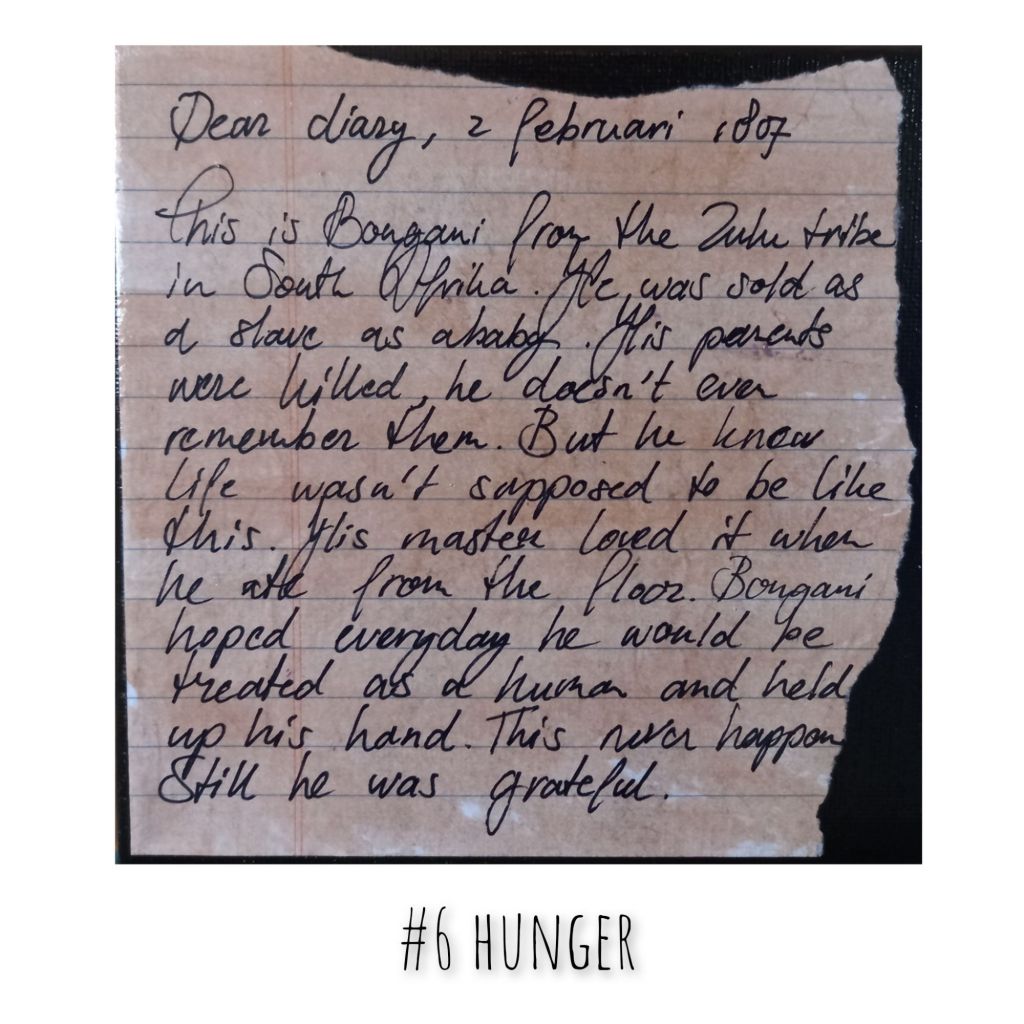 Dear diary, 2 februari 1807
This is Bongani from the Zulu tribe
in South Afrika. He was sold as
a slave as a baby. His parents
were killed, he doesn't even
remember them. But he knew
life wasn't supposed to be like
this. His master loved it when
he ate from the floor. Bongani
hoped everyday he would be
treated as a human and held
up his hand. This never happen
Still he was grateful.
#6 HUNGER